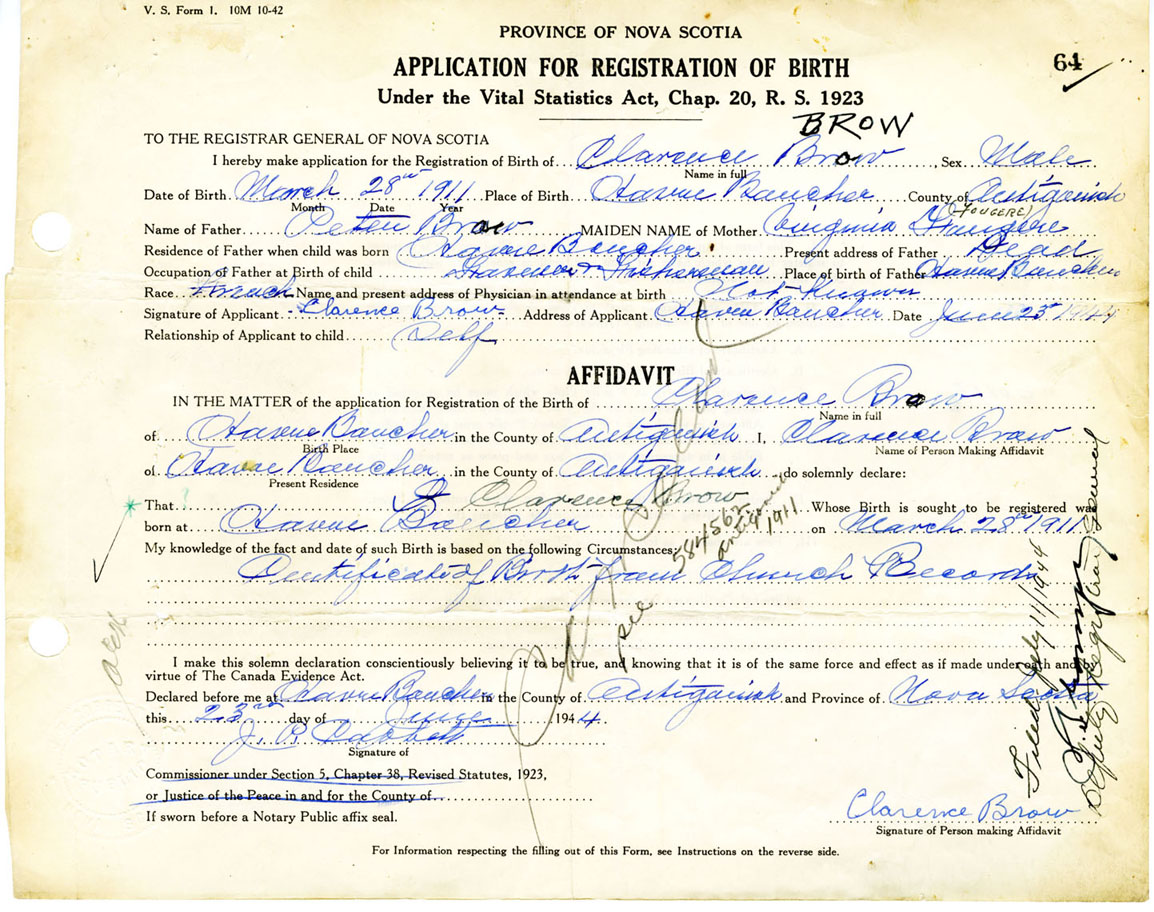 V. S. Form 1. 10M 10-42
PROVINCE OF NOVA SCOTIA
64
APPLICATION FOR REGISTRATION OF BIRTH
Under the Vital Statistics Act, Chap. 20, R. S. 1923
BROW
TO THE REGISTRAR GENERAL OF NOVA SCOTIA
I hereby make application for the Registration of Birth of Clarence Brow, Sex Male
Name in full
Date of Birth March 28 1911 Place of Birth Havre Baucher County of Antigonish
Month Date Year
(FOUGERE)
Name of Father Peter Brow MAIDEN NAME of Mother Virginia
Residence of Father when child was born Havre Boucher Present address of Father Dead
Occupation of Father at Birth of child Farmer & Fisherman Place of birth of Father Havre Baucher
Race French Name and present address of Physician in attendance at birth Not Known
Signature of Applicant Clarence Brow Address of Applicant Havre Baucher Date June 23 1944
Relationship of Applicant to child Self
AFFIDAVIT
IN THE MATTER of the application for Registration of the Birth of Clarence Brow
Name in full
of Havre Baucher in the County of Antigonish I, Clarence Brow
Birth Place Name of Person Making Affidavit
of Havre Baucher in the County of Antigonish do solemnly declare:
Present Residence
That I Clarence Brow Whose Birth is sought to be registered was
born at Havre Baucher on March 28 1911
584562
Antigonish
1911
My knowledge of the fact and date of such Birth is based on the following Circumstances:
Certificate of Birth from Church Records
see
I make this solemn declaration conscientiously believing it to be true, and knowing that it is of the same force and effect as if made under oath and by
virtue of The Canada Evidence Act.
Declared before me at Havre Baucher in the County of Antigonish and Province of Nova Scotia
this 23rd day of June 1944
J. P.
Signature of
Commissioner under Section 5, Chapter 38, Revised Statutes, 1923,
or Justice of the Peace in and for the County of
If sworn before a Notary Public affix seal.
Clarence Brow
Signature of Person making Affidavit
For Information respecting the filling out of this Form, see Instructions on the reverse side.
Filed July 11/1944
Deputy Registrar General